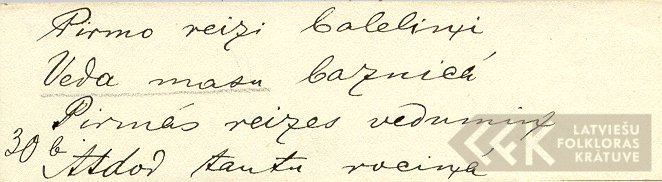 Pirmo reizi balelinxi
Veda masu baznicâ
Pirmás reizes veduminx
30 b Atdod tautu rocinxâ
LATVIEŠU
FOLKLORAS
KRĀTUVE